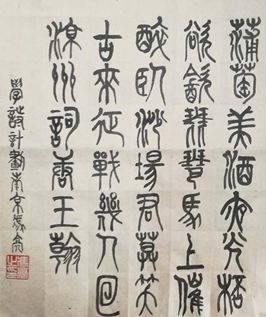 蒲萄美酒夜光杯
欲飲琵琶馬上催
醉臥沙場君莫笑
古來征戰幾人回
涼州詞唐王翰
學設計